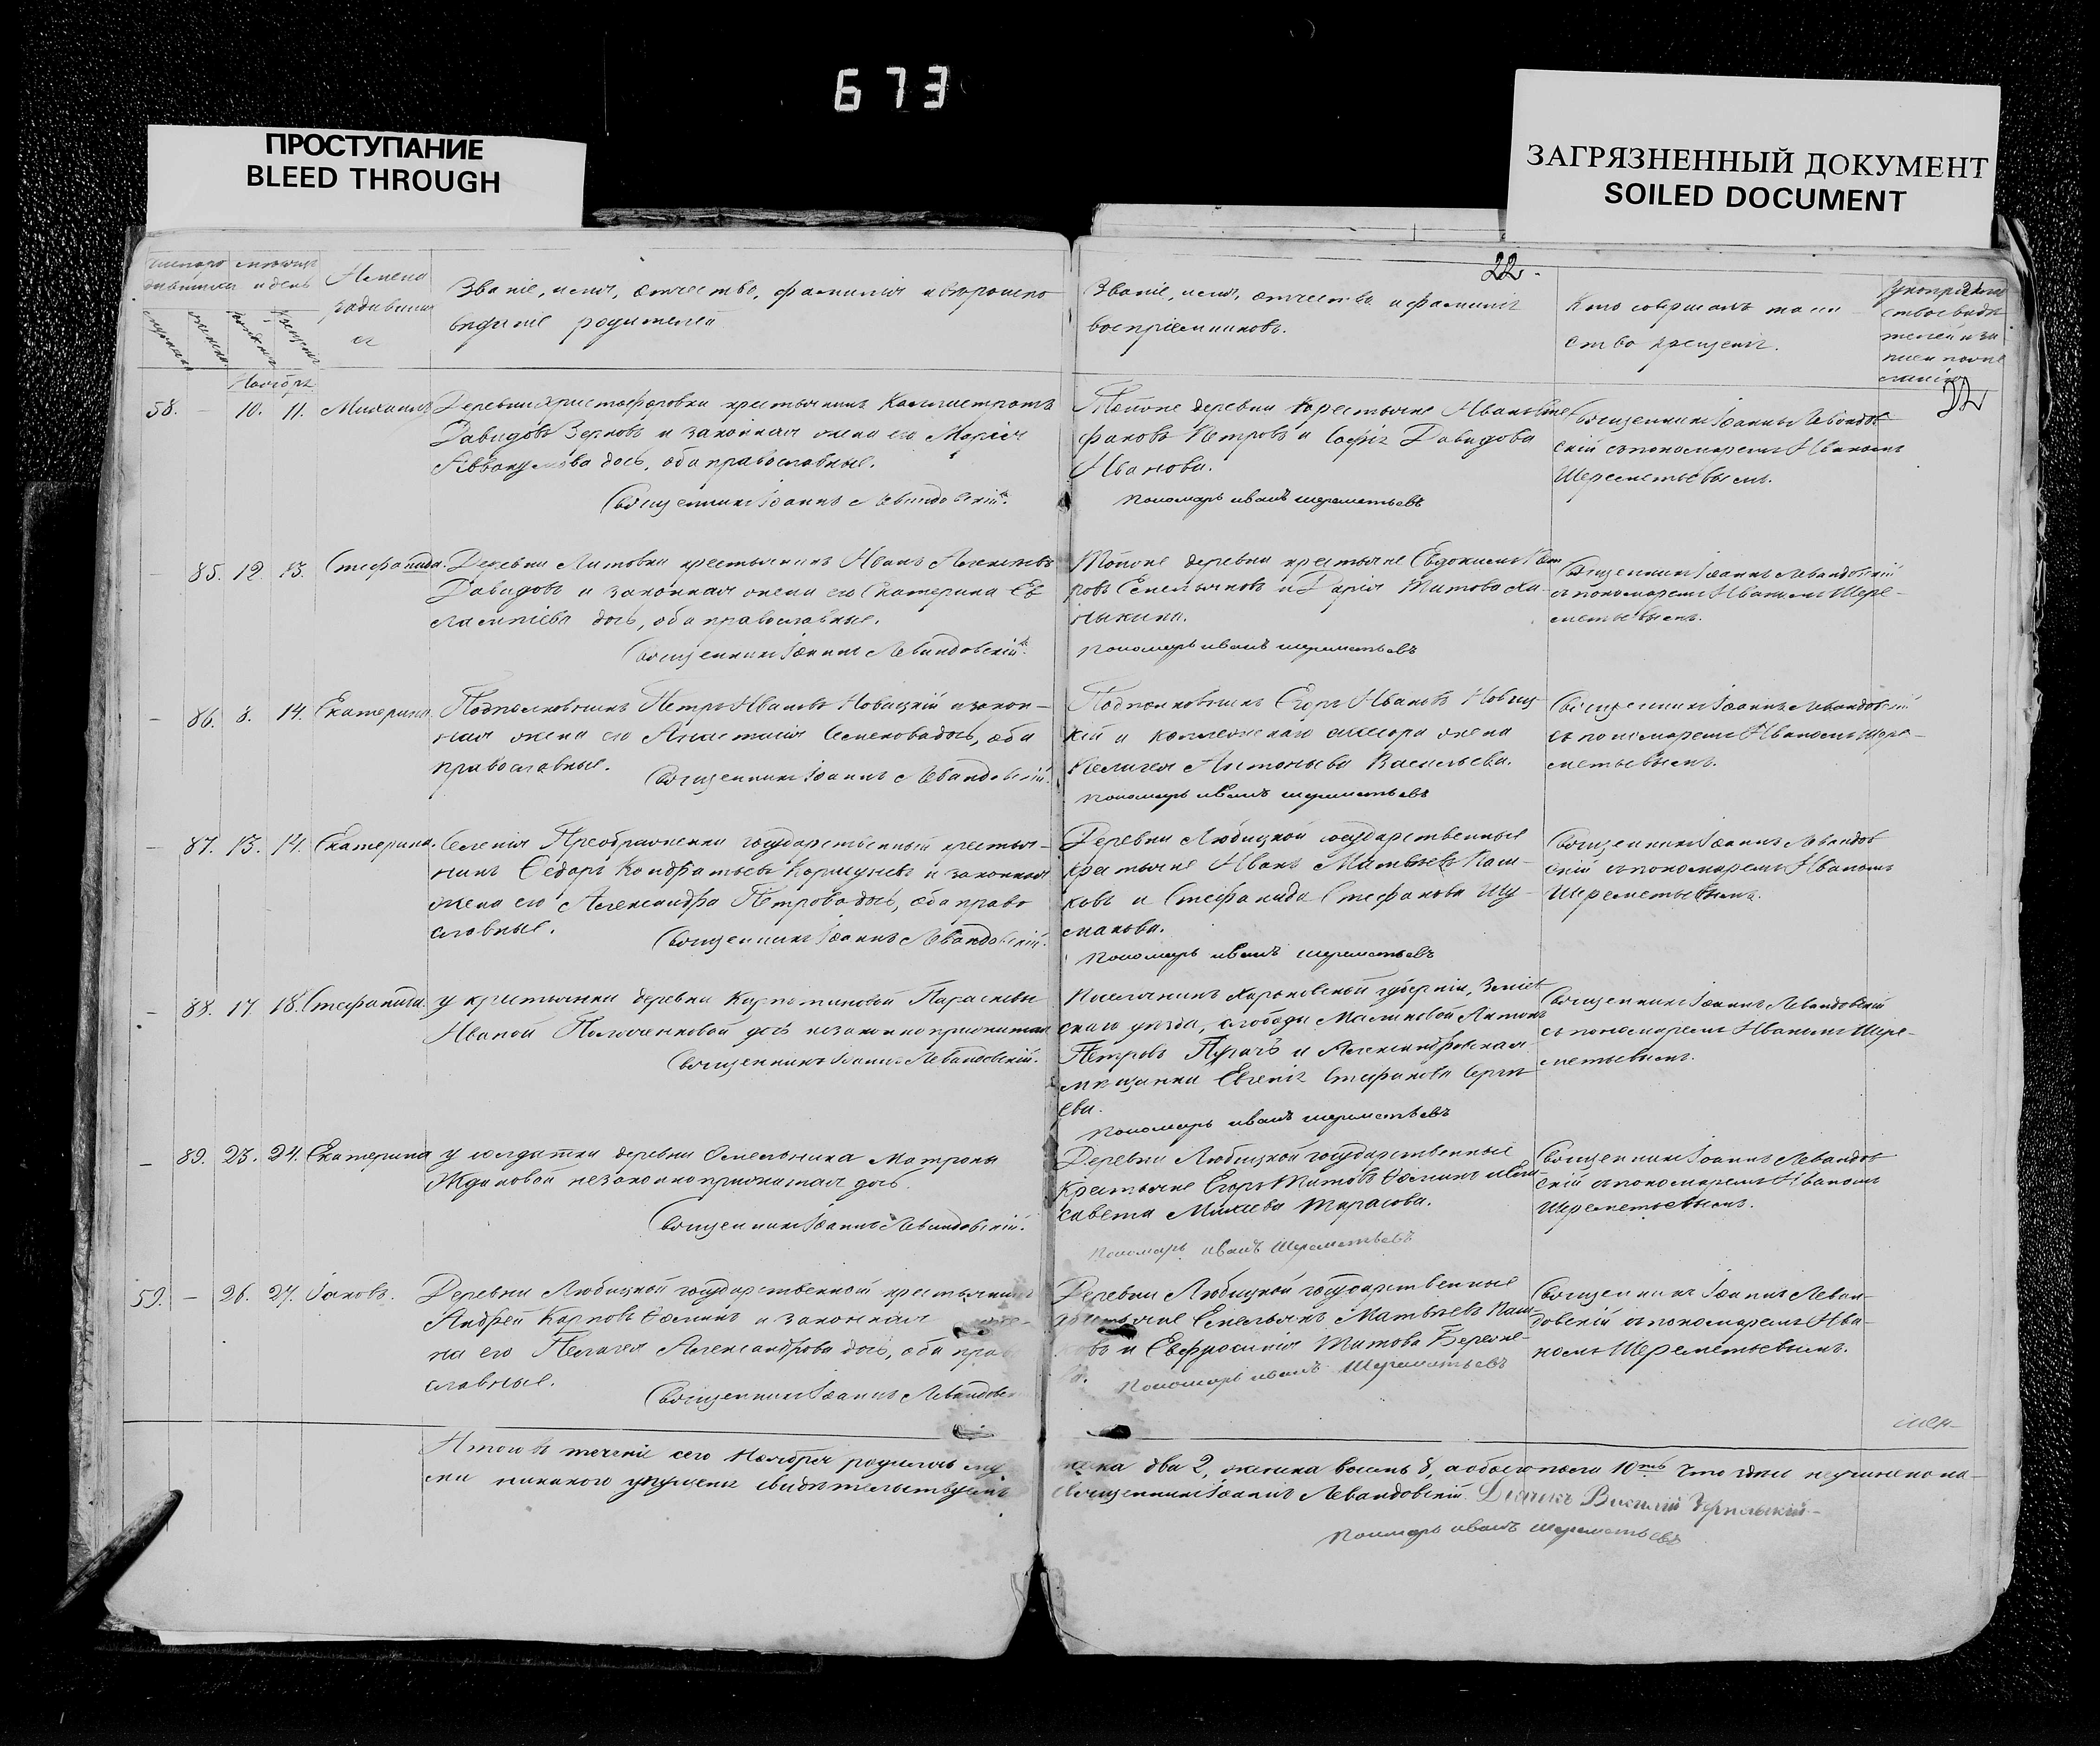 673
ПРОСТУПАНИЕ
BLEED THROUGH
ЗАГРЯЗНЕННЫЙ ДОКУМЕНТ
SOILED DOCUMENT
22.
Имена
родивших
ся
Званіе, имя, отчество, фамилія и вѣроиспо
вѣданіе родителей
Званіе, имя, отчество и фамилія
воспріемниковъ.
Кто совершалъ таин
ство крещенія.
Ноябрь
22
58. 10. 11. Михаилъ
Деревни Христофоровки крестьянинъ Каллистратъ
Давидовъ Зерновъ и законная жена его Марія
Аввакумова дочь, оба православные.
Священникъ Іоаннъ Левандовскій.
Тойже деревни крестьяне Иванъ Сте
фановъ Петровъ и Софія Давидова
Иванова.
Пономарь иванъ шереметьевъ
Священникъ Іоаннъ Левандов
скій съ пономаремъ Иваномъ
Шереметьевымъ.
85. 12. 13. Стефанида.
Деревни Литовки крестьянинъ Иванъ Алексѣевъ
Давидовъ и законная жена его Екатерина Ев
лампіева дочь, оба православные.
Священникъ Іоаннъ Левандовскій.
Тойже деревни крестьяне Евдокимъ Пет
ровъ Емельяновъ и Дарія Титова Ка
нькина.
Пономарь иванъ шереметьевъ
Священникъ Іоаннъ Левандовскій
съ пономаремъ Иваномъ Шере-
метьевымъ.
– 86. 8. 14. Екатерина.
Подполковникъ Петръ Ивановъ Новицкій и закон-
ная жена его Анастасія Семенова дочь, оба
православные.
Священникъ Іоаннъ Левандовскій.
Подполковникъ Егоръ Ивановъ Новиц-
кій и коллежскаго ассесора жена
Пелагея Антоньева Васильева.
Пономарь иванъ шереметьевъ
Священникъ Іоаннъ Левандовскій
съ пономаремъ Иваномъ Шере-
метьевымъ.
– 87. 13. 14. Екатерина.
Селенія Преображенки государственный крестья-
нинъ Ѳедоръ Кондратьевъ Коршуновъ и законная
жена его Александра Петрова дочь, оба право
славные.
Священникъ Іоаннъ Левандовскій.
Деревни Любицкой государственные
крестьяне Иванъ Матвѣевъ Каш-
ковъ и Стефанида Стефанова Шу-
макова.
Пономарь иванъ шереметьевъ
Священникъ Іоаннъ Левандов
скій съ пономаремъ Иваномъ
Шереметьевымъ.
– 88. 17. 18. Стефанида.
У крестьянки деревни Параскевы
Ивановой дочь незаконноприжитая
Священникъ Іоаннъ Левандовскій.
Поселянинъ Харьковской губерніи, Зміев
скаго уѣзда, слободы Малиновой Антонъ
Петровъ Пугачъ и Александровская
мѣщанка Евгенія Стефанова Сергѣ
ева.
Пономарь иванъ шереметьевъ
Священникъ Іоаннъ Левандовскій
съ пономаремъ Иваномъ Шере-
метьевымъ.
– 89. 23. 24. Екатерина
У солдатки деревни Омельника Матроны
Ждановой незаконноприжитая дочь.
Священникъ Іоаннъ Левандовскій.
Деревни Любицкой государственные
крестьяне Егоръ Титовъ Ѳоминъ и Ели-
савета Михеева Тарасова.
Пономарь иванъ Шереметьевъ
Священникъ Іоаннъ Левандов
скій съ пономаремъ Иваномъ
Шереметьевымъ.
59. – 26. 27. Іаковъ.
Деревни Любицкой государственной крестьянинъ
Андрей Карповъ Ѳоминъ и законная же-
на его Пелагея Александрова дочь, оба право
славные.
Священникъ Іоаннъ Левандовс
Деревни Любицкой государственные
крестьяне Емельянъ Матвѣевъ Каш-
ковъ и Евфросинія Титова Бережне-
ва.
Пономарь иванъ Шереметьевъ
Священникъ Іоаннъ Леван-
довскій съ пономаремъ Ива-
номъ Шереметьевымъ.
Итого въ теченіе сего Ноября родилось му
жеска два 2, женска восемь 8, а обоего пола 10ть. Что
ми никакого упущенія свидѣтельствуемъ
Священникъ Іоаннъ Левандовскій. Дьячекъ Василій
Пономарь иванъ шереметьевъ